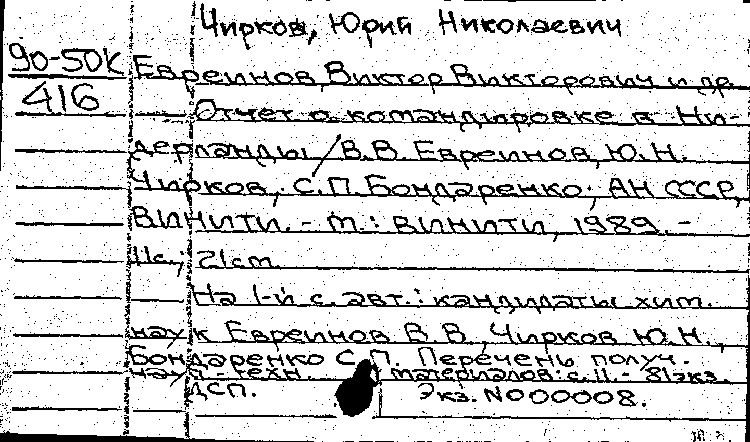 Чирков, Юрий Николаевич
90-50К
416
Евреинов, Виктор Викторович и др.
Отчет о командировке в Ни-
дерланды / В.В. Евреинов, Ю.Н.
Чирков, С.П. Бондаренко; АН СССР,
ВИНИТИ. - М.: ВИНИТИ, 1989. -
11с.; 21см.
На 1-й с. авт.: кандидаты хим.
наук Евреинов В.В., Чирков Ю.Н.,
Бондаренко С.П. Перечень получ.
науч.-техн. материалов: с.11.- 81экз.
ДСП. Экз. N000008.